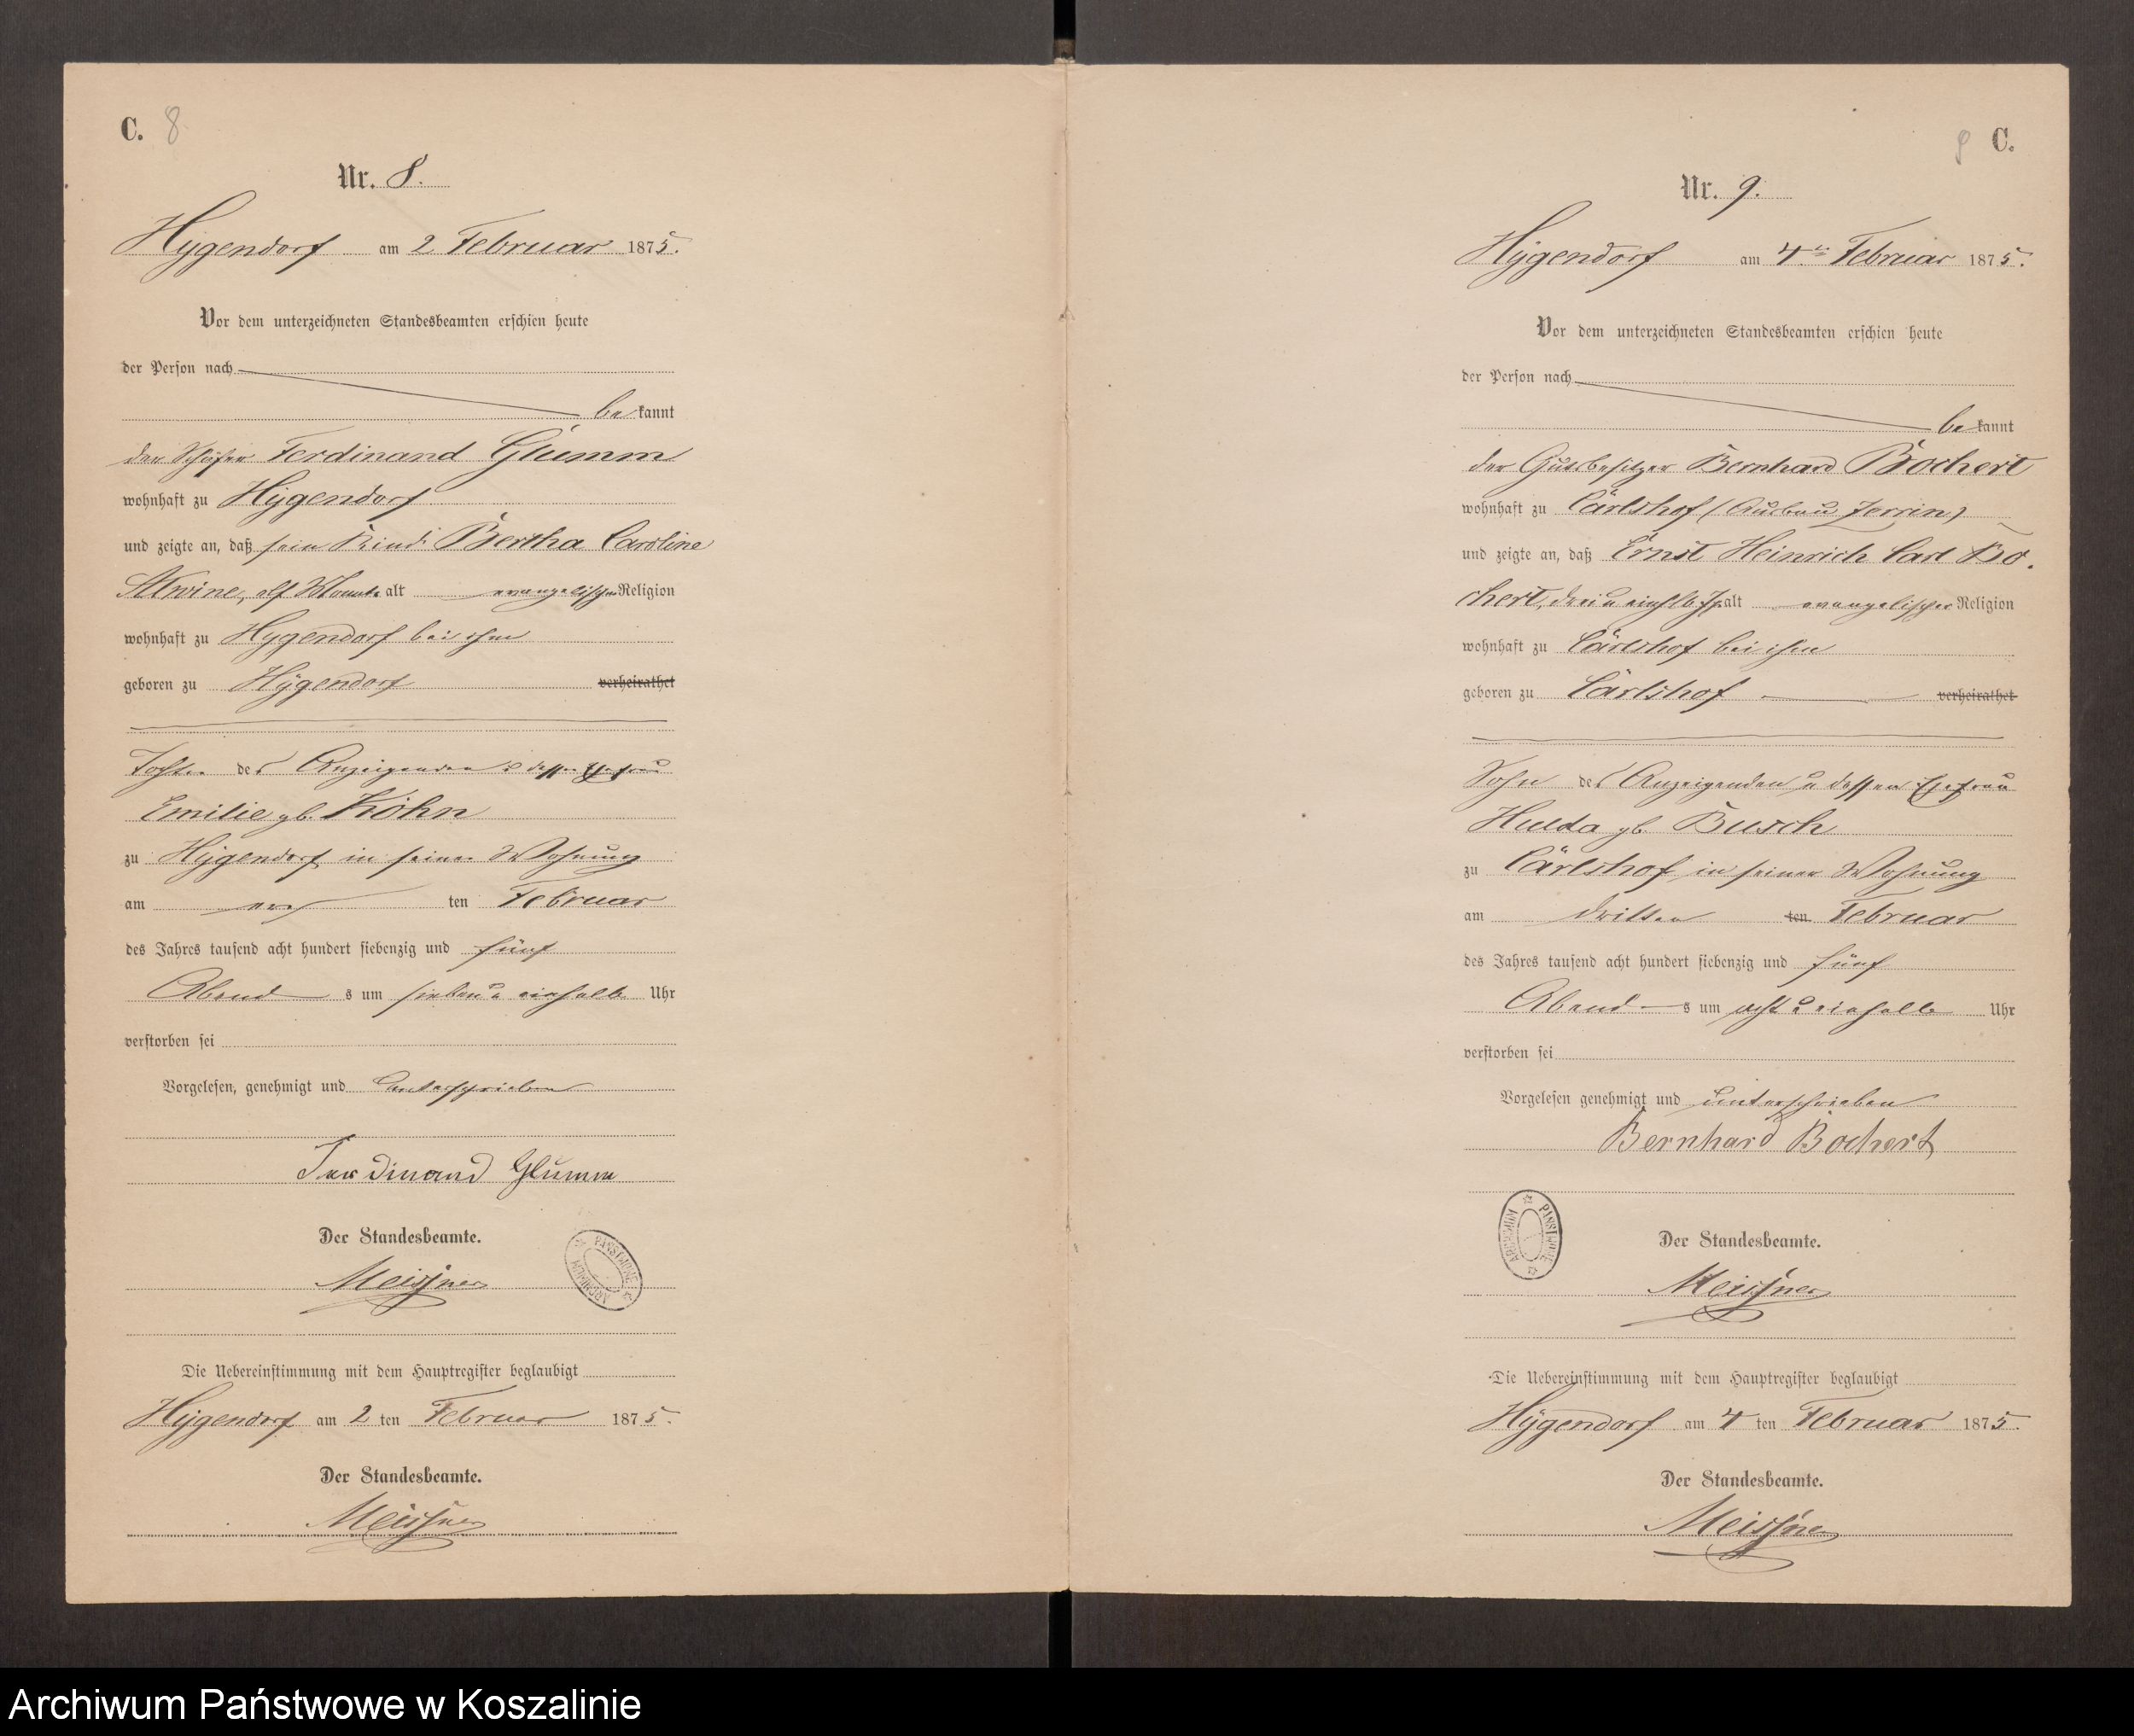 C. 8
Nr. 8.
Hygendorf am 2 Februar 1875.
Vor dem unterzeichneten Standesbeamten erschien heute
der Person nach
bekannt
der Schäfer Ferdinand Glumm
wohnhaft zu Hygendorf
und zeigte an, daß sein Kind Bertha Caroline
Alwine, elf Monate alt evangelischer Religion
wohnhaft zu Hygendorf bei ihm
geboren zu Hygendorf verheirathet
Tochter des Anzeigenden u dessen Ehefrau
Emilie gb. Köhn
zu Hygendorf in seiner Wohnung
am ers ten Februar
des Jahres tausend acht hundert siebenzig und fünf
Abend s um sieben u einhalb Uhr
verstorben sei
Vorgelesen, genehmigt und unterschrieben
Ferdinand Glumm
Der Standesbeamte.
Meissner
ARCHIWUM PAŃSTWOWE
Die Uebereinstimmung mit dem Hauptregister beglaubigt
Hygendorf am 2 ten Februar 1875.
Der Standesbeamte.
Meissner
9 C.
Nr. 9.
Hygendorf am 4ten Februar 1875.
Vor dem unterzeichneten Standesbeamten erschien heute
der Person nach
bekannt
der Gutsbesitzer Bernhard Bochert
wohnhaft zu Carlshof (Ausbau Zerrin)
und zeigte an, daß Ernst Heinrich Carl Bo-
chert, drei u einhlb J. alt evangelischer Religion
wohnhaft zu Carlshof bei ihm
geboren zu Carlshof verheirathet
Sohn des Anzeigenden u dessen Ehefrau
Hulda gb. Busch
zu Carlshof in seiner Wohnung
am dritten ten Februar
des Jahres tausend acht hundert siebenzig und fünf
Abend s um acht u einhalb Uhr
verstorben sei
Vorgelesen genehmigt und unterschrieben
Bernhard Bochert
ARCHIWUM PAŃSTWOWE
Der Standesbeamte.
Meissner
Die Uebereinstimmung mit dem Hauptregister beglaubigt
Hygendorf am 4 ten Februar 1875.
Der Standesbeamte.
Meissner
Archiwum Państwowe w Koszalinie